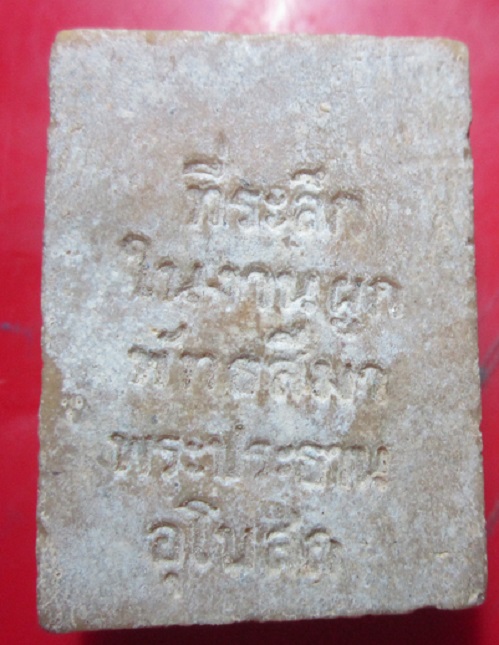 ที่ระลึก
ในงานผูก
พัทธสีมา
พระประธาน
อุโบสถ